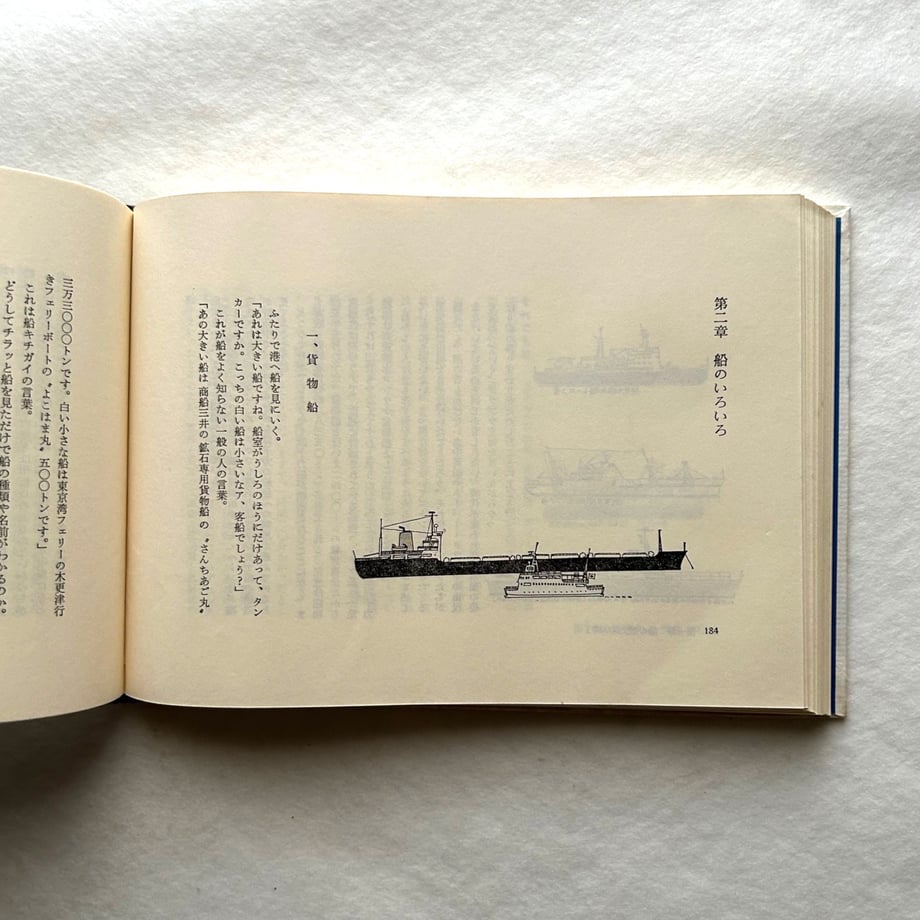 第二章　船のいろいろ
一、貨物船
ふたりで港へ船を見にいく。
「あれは大きい船ですね。船室がうしろのほうにだけあって、タン
カーですか。こっちの白い船は小さいなア、客船でしょう？」
これが船をよく知らない一般の人の言葉。
「あの大きい船は 商船三井の 鉱石専用貨物船 の 〝さんちあご丸〟
184
三万三〇〇〇トンです。白い小さな船は東京湾フェリーの木更津行
きフェリーボートの〝よこはま丸〟五〇〇トンです。」
これは船キチガイの言葉。
どうしてチラッと船を見ただけで船の種類や名前がわかるのか。